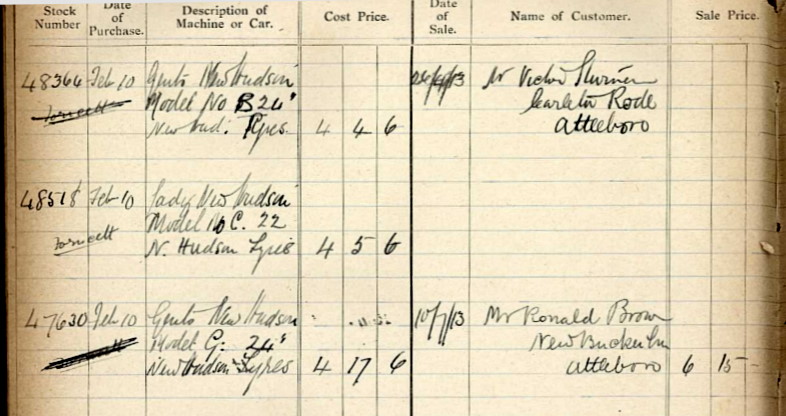 Stock Number Date of Purchase. Description of Machine or Car. Cost Price. Date of Sale. Name of Customer. Sale Price.
48364 Feb 10 Gents New Hudson 24/4/13 Mr Victor
Forncett Model No B 24" Carleton Rode
New Hud. Tyres. 4 4 6 Attleboro
48518 Feb 10 Lady New Hudson
Model No C. 22
Forncett N. Hudson Tyres 4 5 6
47630 Feb 10 Gents New Hudson 10/7/13 Mr Ronald Brown
Model G. 24" New Buckenhm
New Hudson Tyres 4 17 6 Attleboro 6 15 -